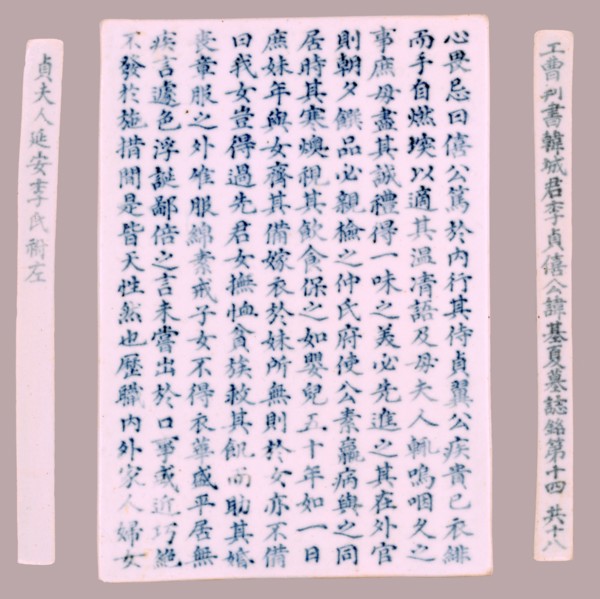 工曹判書韓城君李貞僖公諱基夏墓誌銘第十四 共十八
心畏忌曰僖公篤於內行其侍貞翼公疾貴已衣緋
而手自燃堗以適其溫凊語及母夫人輒嗚咽久之
事庶母盡其誠禮得一味之美必先進之其在外官
則朝夕饌品必親檢之仲氏府使公素羸病與之同
居時其寒燠視其飮食保之如嬰兒五十年如一日
庶妹年與女齊其備嫁衣於妹所無則於女亦不備
曰我女豈得過先君女撫恤貧族救其飢而助其婚
喪章服之外惟服綿素戒子女不得衣華盛平居無
疾言遽色浮誕鄙倍之言未嘗出於口事或近巧絶
不發於施措間是皆天性然也歷職內外家人婦女
貞夫人延安李氏祔左